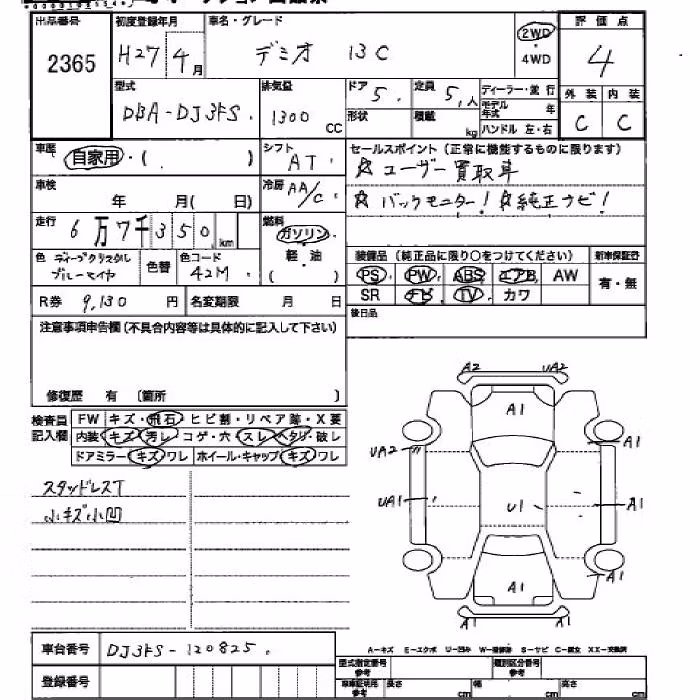 出品番号 初度登録年月 車名・グレード 評価点
2365 H27 4月 デミオ 13C 2WD 4
4WD
型式 排気量 ドア 5. 定員 5.人 ディーラー・並行 外装 内装
モデル年式 年
DBA-DJ3FS. 1300 CC 形状 積載 kg ハンドル 左・右 C C
車歴 自家用・( ) シフト AT. セールスポイント(正常に機能するものに限ります)
☆ ユーザー買取車
車検 年 月( 日) 冷房 AA/C. ☆ バックモニター! ☆純正ナビ!
走行 6万7千350km 燃料 ガソリン
軽・油
( )
装備品(純正品に限り○をつけてください) 新車保証書
色 ディープクリスタルブルーマイカ 色替 色コード 42M. PS. PW. ABS. エアB. AW 有・無
R券 9,130円 名変期限 月 日 SR ナビ. TV. カワ
注意事項申告欄(不具合内容等は具体的に記入して下さい) 後日品
修復歴 有 〔箇所 〕
検査員記入欄 FW キズ・飛石・ヒビ割・リペア跡・X要
内装 キズ・汚レ・コゲ・穴・スレ・ヘタリ・破レ
ドアミラー キズ・ワレ ホイール・キャップ キズ・ワレ
A2 UA2
A1
A1
UA2
UA1 U1 A1
A1
A1
A1 A1
スタッドレスT
小キズ小凹
車台番号 DJ3FS-120825.
A−キズ E−エクボ U−凹み W−補修跡 S−サビ C−腐食 XX−交換済
登録番号 型式指定番号参考 類別区分番号参考
車庫証明用参考 長さ cm 幅 cm 高さ cm